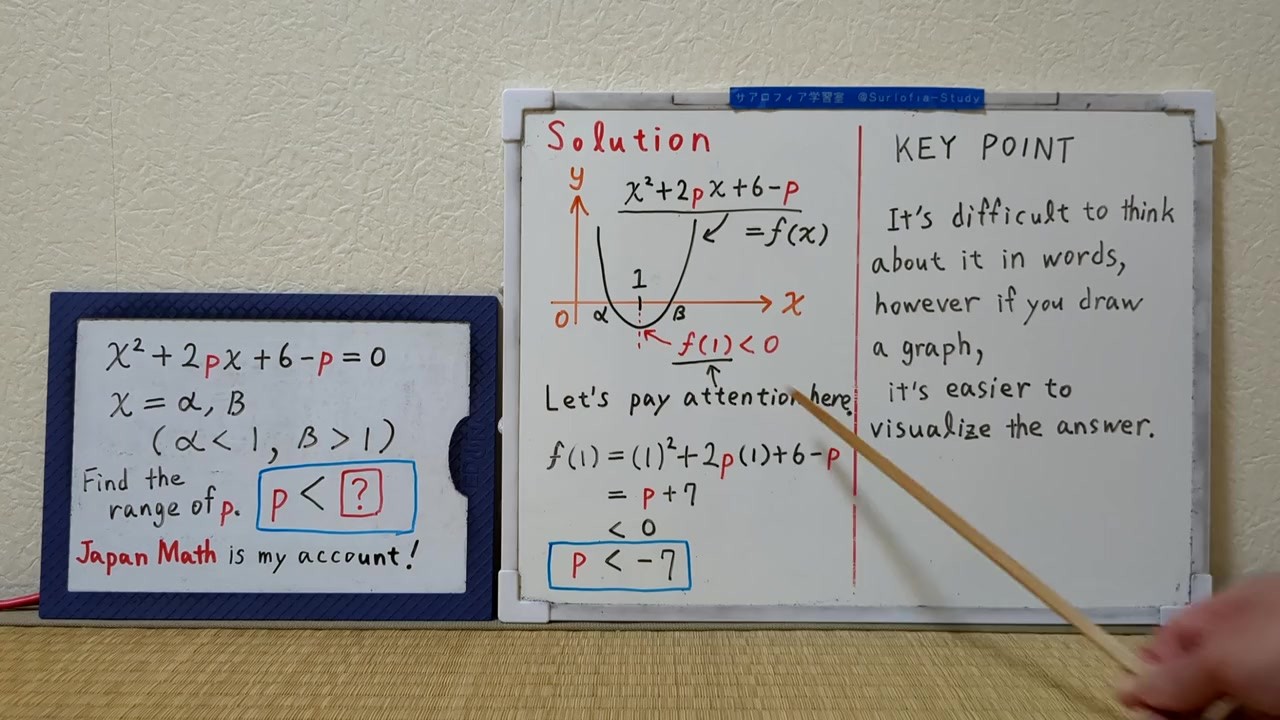 x²+2px+6-p=0
x=α,β
(α<1, β>1)
Find the
range of p. p < ?
Japan Math is my account!
サアロフィア学習室 @Surlofia-Study
Solution
y
x²+2px+6-p
=f(x)
1
0 α β x
f(1)<0
Let's pay attention here.
f(1)=(1)²+2p(1)+6-p
= p+7
< 0
p < -7
KEY POINT
It's difficult to think
about it in words,
however if you draw
a graph,
it's easier to
visualize the answer.